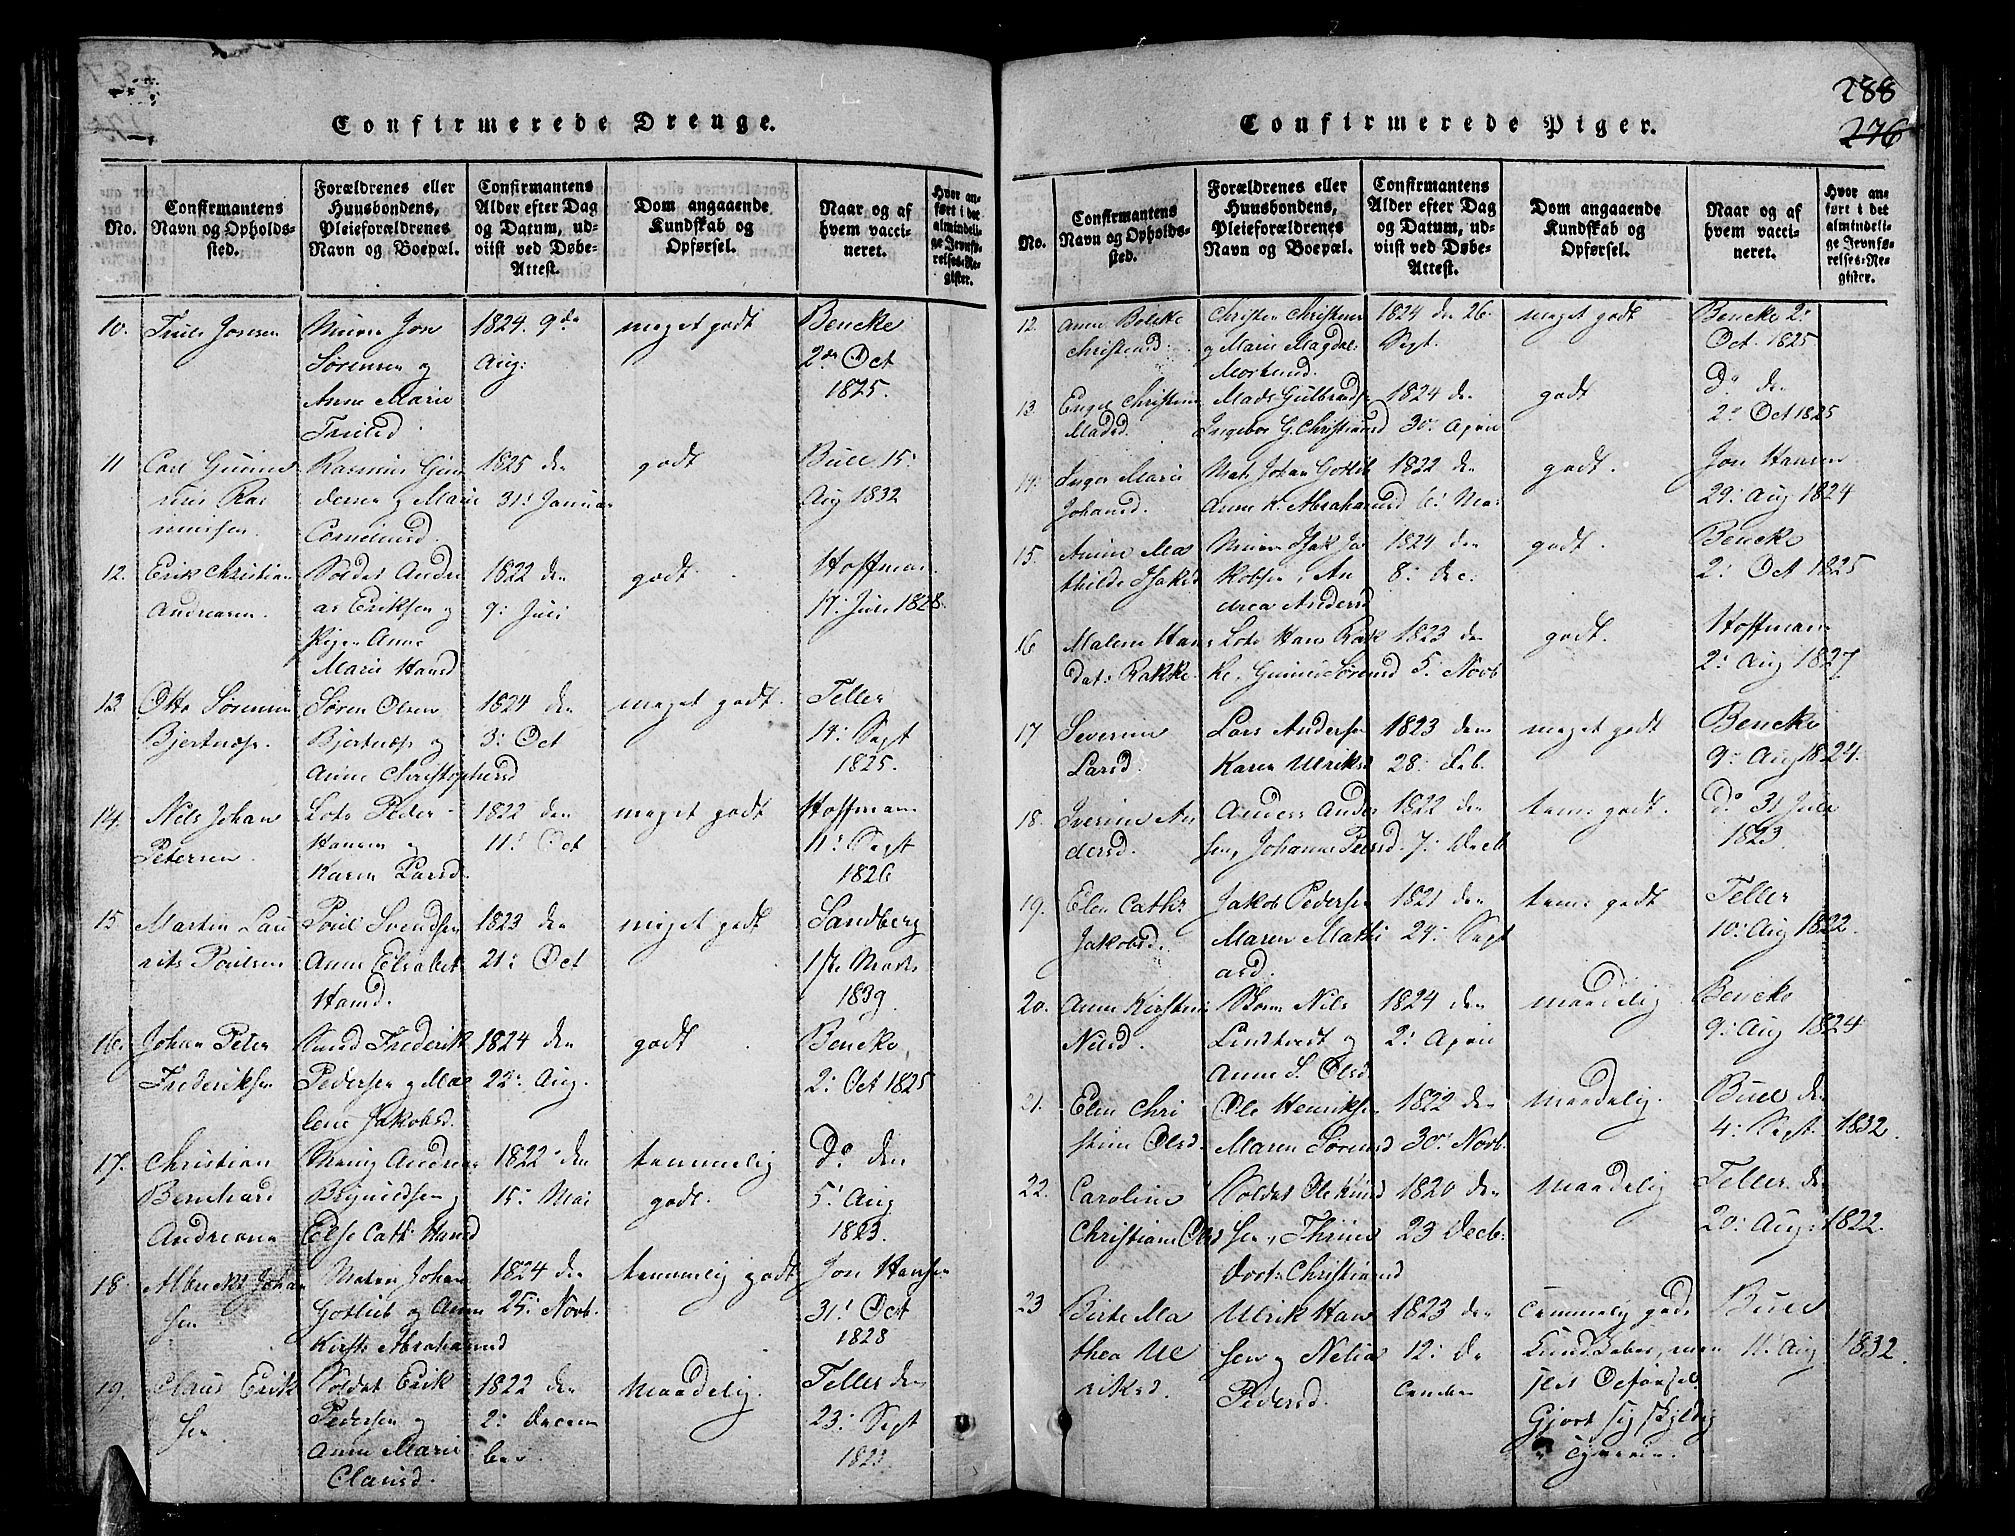 288
276
Confirmerede Drenge.
No.
Confirmantens
Navn og Opholds-
sted.
Forældrenes eller
Huusbondens,
Pleieforældrenes
Navn og Boepæl.
Confirmantens
Alder efter Dag
og Datum, ud-
viist ved Døbe-
Attest.
Dom angaaende
Kundskab og
Opførsel.
Naar og af
hvem vacci-
neret.
Hvor an-
ført i det
almindeli-
ge Jevnfø-
relses-Re-
gister.
10. Truls Jonsen
Jon
Sørensen og
Anne Marie
Trulsd
1824. 9de
Aug:
meget godt
Bencke
2de Oct
1825.
11 Carl Gunne
rius Ras
mussen
Rasmus Gun
dersen og Marie
Corneliusd.
1825 den
31: Januar
godt
Bull 15:
Aug 1832
12. Erik Christian
Andreasen.
Soldat Andre
as Eriksen og
Pigen Anne
Marie Hansd
1822 den
9: Juli
godt.
Hoffman
17: Juli 1828.
13 Otto Sørensen
Bjertnæs.
Søren Olsen
Bjertnæs og
Anne Christophersd
1824 den
3: Oct
meget godt.
Teller
14: Sept
1825.
14. Nels Johan
Petersen.
Lods Peder
Hansen og
Karen Larsd.
1822 den
11: Oct
meget godt
Hoffman
11: Sept
1826
15 Martin Lau
rits Poulsen
Poul Svendsen
Anne Elsabet
Hansd.
1823 den
21: Oct
meget godt
Sandberg
17de Marts
1839.
16. Johan Peter
Frederiksen
Smed Frederik
Pedersen og Ma
lene Jakobsd.
1824 den
22: Aug.
godt
Bencke,
2: Oct 1825
17. Christian
Bernhard
Andreasen
Andreas
Brynildsen og
Else Cath: Hansd
1822 den
15: Mai
temmelig
godt.
Do den
5: Aug
1823.
18. Albrekt Johan
sen
Matr: Johan
Gotlieb og Anne
Kirst: Abrahamsd
1824 den
25: Novb.
temmelig godt
Jon Hansen
31: Oct
1828
19. Claus Erik
sen.
Soldat Erik
Pedersen og
Anne Marie
Clausd.
1822 den
2: Decem
ber.
Maadelig.
Teller den
23: Sept
1823
Confirmerede Piger.
No.
Confirmantens
Navn og Opholds-
sted.
Forældrenes eller
Huusbondens,
Pleieforældrenes
Navn og Boepæl.
Confirmantens
Alder efter Dag
og Datum, ud-
viist ved Døbe-
Attest.
Dom angaaende
Kundskab og
Opførsel.
Naar og af
hvem vacci-
neret.
Hvor an-
ført i det
almindeli-
ge Jevnfø-
relses-Re-
gister.
12. Anne Bolette
Christensd.
Christen Christens
og Marie Magdal:
Mortensd.
1824 den 26.
Sept.
meget godt
Bencke 2:
Oct. 1825
13. Engel Christine
Madsd.
Mads Gulbrands
Ingebor G. Christiansd
1824 den
30: April
godt
Do den
2: Oct 1825
14. Inger Marie
Johansd.
Mat: Johan Gotlib
Anne K. Abrahamsd
1822 den
6: Mai
godt.
Jon Hansen
29: Aug 1824
15. Anne Ma
thilde Isaksd
Isak Ja
kobsen, An
drea Andersd
1824 den
8: Dec:
godt.
Bencke
2: Oct 1825
16 Malene Hans
dat: Rakke.
Lods Hans Rak
ke, Gunnil Sørensd
1823 den
5: Novb
godt.
Hoffman
2: Aug 1827
17 Severine
Larsd.
Lars Andersen
Karen Ulriksd
1823 den
28: Feb.
meget godt
Bencke
9: Aug 1824.
18. Iverine An
dersd.
Anders Ander
sen, Johanne Peersd.
1822 den
7: Decb
tem: godt.
Do 31 Juli
1823.
19. Elen Cathr:
Jakobsd.
Jakob Pedersen
Maren Matti
asd.
1821 den
24: Sept
tem: godt
Teller
10: Aug 1822.
20. Anne Kirstine
Nilsd.
Nils
Lindtvedt og
Anne S. Olsd
1824 den
2: April
maadelig
Bencke
9: Aug 1824
21. Elen Chri
stine Olsd.
Ole Henriksen
Maren Sørensd
1822 den
30: Novb.
Maadelig.
Bull den
4: Sept. 1832.
22. Caroline
Christiane Olsd
Soldat Ole Knud
sen, Thrine
Dort: Christiansd
1820 den
23 Decb:
Maadelig
Teller den
20: Aug: 1822.
23 Birte Ma
thea Ul
riksd.
Ulrik Han
sen og Nelia
Pedersd.
1823 den
12: De
cember
Temmelig gode
Kundskaber, men
slet Opførsel
Gjort sig skyldig
i Tyverie.
Bull
11. Aug 1832.